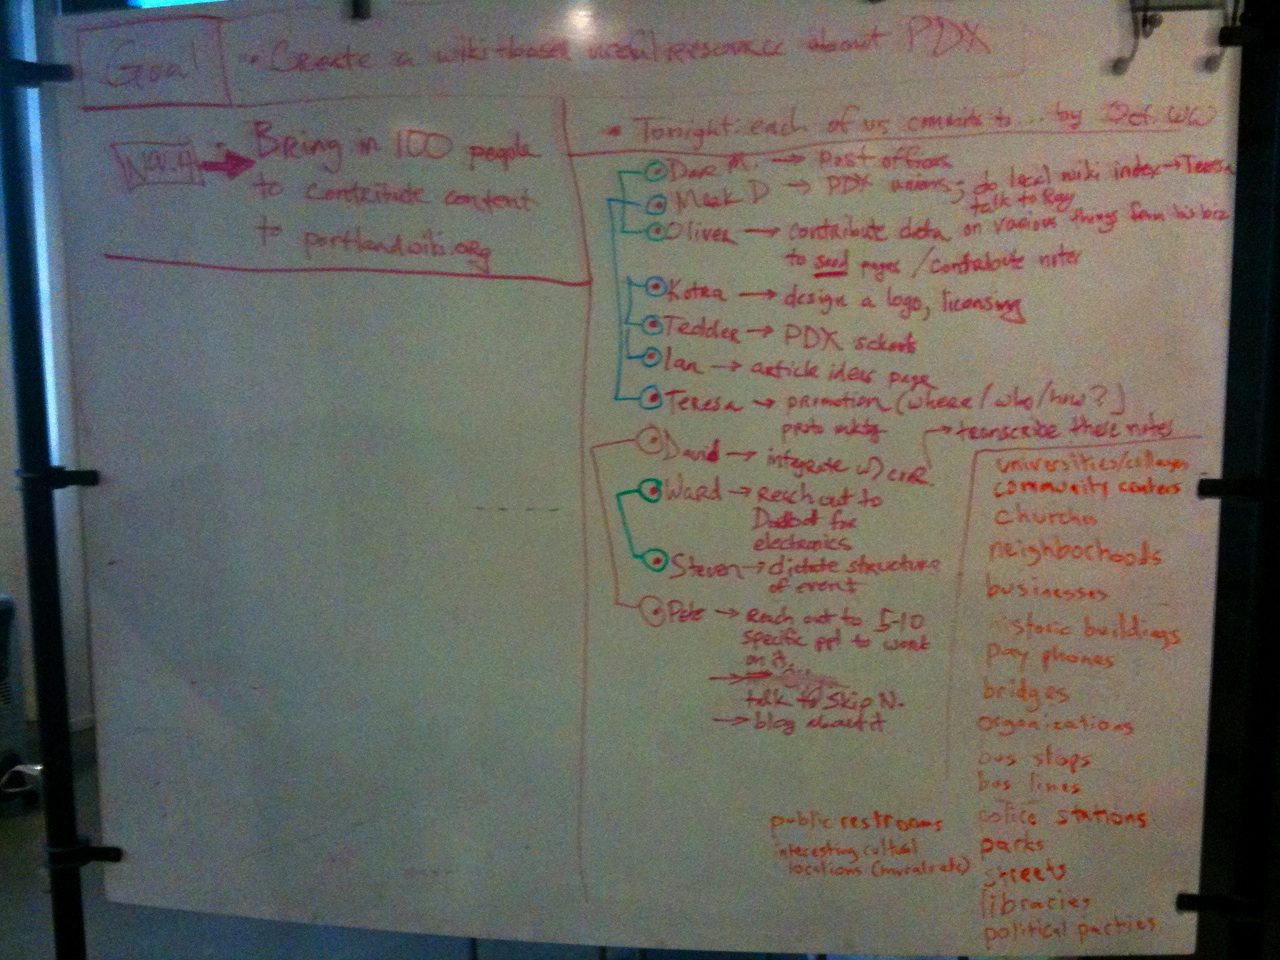 Goal • Create a wiki-based useful resource about PDX
Nov. 9 → Bring in 100 people
to contribute content
to portlandwiki.org
• Tonight: each of us commits to... by Oct. WW
Dave M. → Post offices
Mark D → PDX unions; do local wiki index → Teresa
talk to Ray
Oliver → contribute data on various things from his biz
to seed pages / contribute notes
Kotra → design a logo, licensing
Tedder → PDX schools
Ian → article ideas page
Teresa → promotion (where / who / how?)
proto mktg
→ transcribe these notes
David → integrate w/
Ward → Reach out to
for
electronics
Steven → dictate structure
of event
Pete → Reach out to 5-10
specific ppl to work
on it.
talk to Skip N.
→ blog about it
universities/colleges
community centers
churches
neighborhoods
businesses
historic buildings
pay phones
bridges
organizations
bus stops
bus lines
police stations
parks
streets
libraries
political parties
public restrooms
interesting cultural
locations (murals etc)